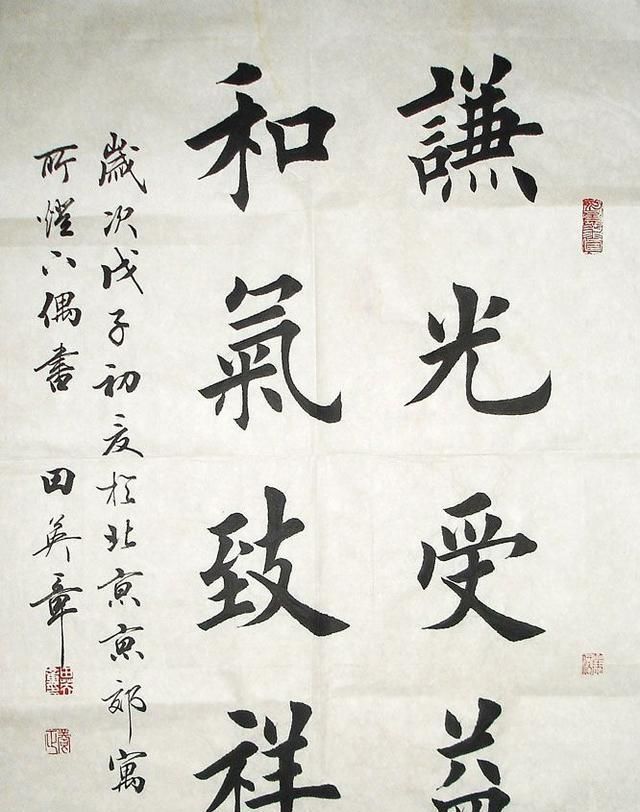 謙光受益
和氣致祥
歲次戊子初夏於北京京郊寓
所燈下偶書 田英章